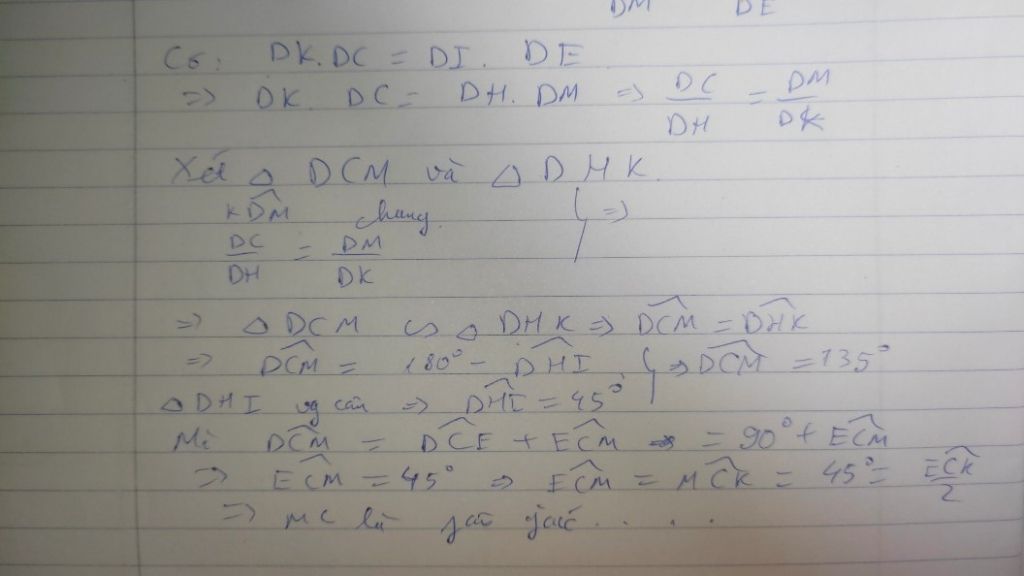 DM DE
Có: DK. DC = DI. DE
=> DK. DC = DH. DM => DC/DH = DM/DK
Xét △ DCM và △ DHK.
KD̂M chung } =>
DC/DH = DM/DK
=> △ DCM ∽ △ DHK => DĈM = DĤK
=> DĈM = 180° - DĤI } => DĈM = 135°
△ DHI vg cân => DĤI = 45°
Mà DĈM = DĈE + EĈM = 90° + EĈM
=> EĈM = 45° => EĈM = MĈK = 45° = EĈK/2
=> MC là giác . . . .